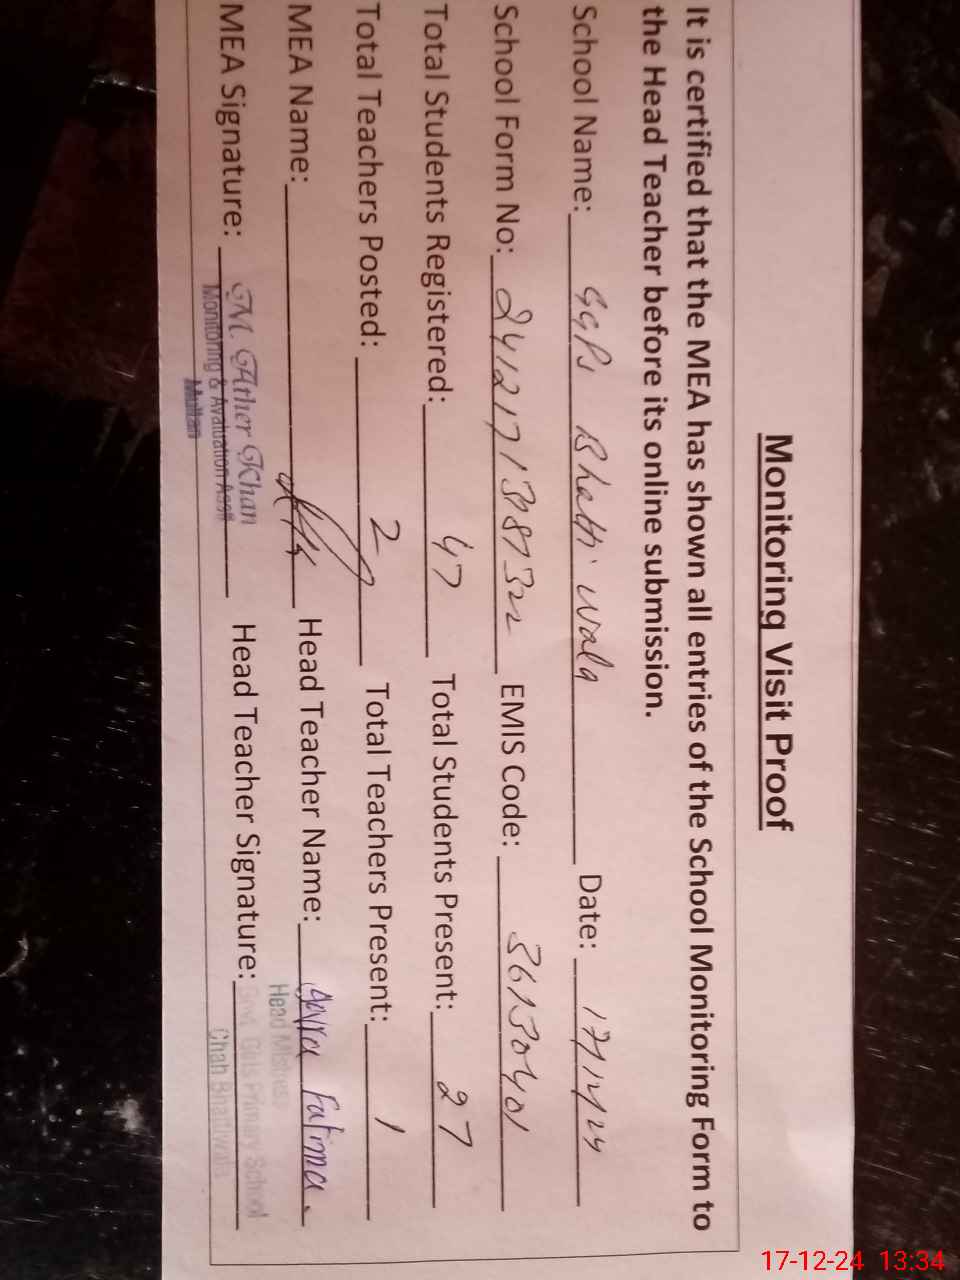 Monitoring Visit Proof
It is certified that the MEA has shown all entries of the School Monitoring Form to
the Head Teacher before its online submission.
School Name: GGPS Bhatti wala Date: 17/12/24
School Form No: 241217 EMIS Code: 36130401
Total Students Registered: 47 Total Students Present: 27
Total Teachers Posted: 2 Total Teachers Present: 1
MEA Name: Head Teacher Name: Fatima.
Head Mistress
MEA Signature: M. Ather Khan Head Teacher Signature: Govt. Girls Primary School
Monitoring & Avaluation Asstt Chah Bhattiwala
Multan
17-12-24 13:34